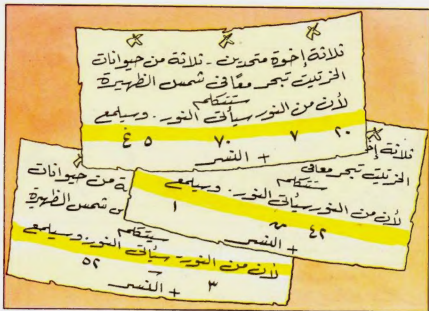 ثلاثة إخوة متحدين - ثلاثة من حيوانات
الخرتيت تبحر معًا في شمس الظهيرة
ستتكلم
لأن من النور سيأتي النور . وسيلمع
٢٠ ٧ ٧٠ ٥ غ
+ النسر
ثلاثة
الخرتيت تبحر معًا في
ستتكلم
لأن من النور سيأتي النور . وسيلمع
٤٢ ١
+ النسر
من حيوانات
شمس الظهيرة
ستتكلم
لأن من النور سيأتي النور . وسيلمع
٣ ٥٢
+ النسر